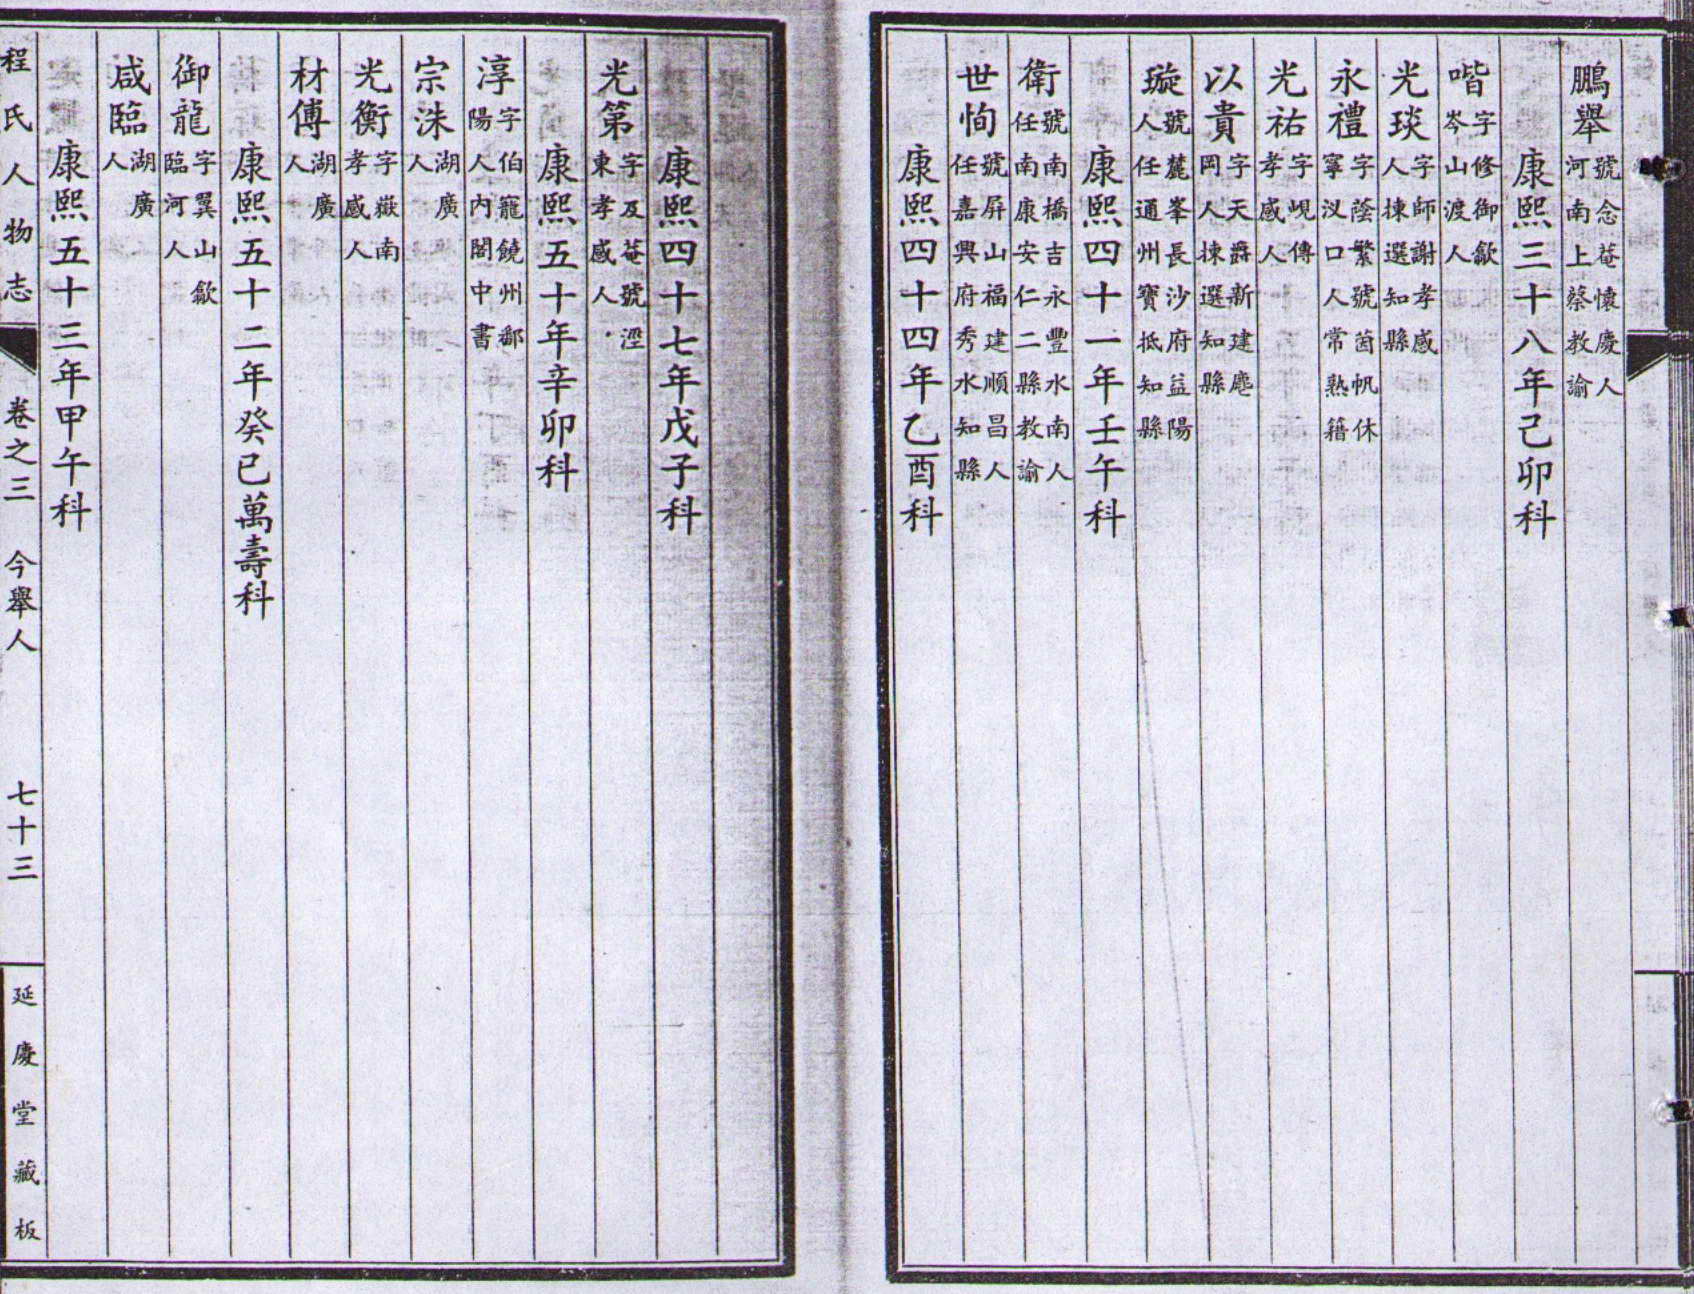 鵬舉 號念菴懷慶人河南上蔡教諭
康熙三十八年己卯科
喈 字修御歙岑山渡人
光琰 字師謝孝感人揀選知縣
永禮 字蔭繁號茵帆休寧汊口人常熟籍
光祐 字峴傳孝感人
以貴 字天爵新建塵岡人揀選知縣
璇 號麓峯長沙府益陽人任通州寶抵知縣
康熙四十一年壬午科
衛 號南橋吉永豐水南人任南康安仁二縣教諭
世恂 號屏山福建順昌人任嘉興府秀水知縣
康熙四十四年乙酉科
康熙四十七年戊子科
光第 字及菴號澀東孝感人
康熙五十年辛卯科
淳 字伯寵饒州鄱陽人內閣中書
宗洙 湖廣人
光衡 字嶽南孝感人
材傅 湖廣人
康熙五十二年癸巳萬壽科
御龍 字翼山歙臨河人
咸臨 湖廣人
康熙五十三年甲午科
程氏人物志 卷之三 今舉人 七十三 延慶堂藏板